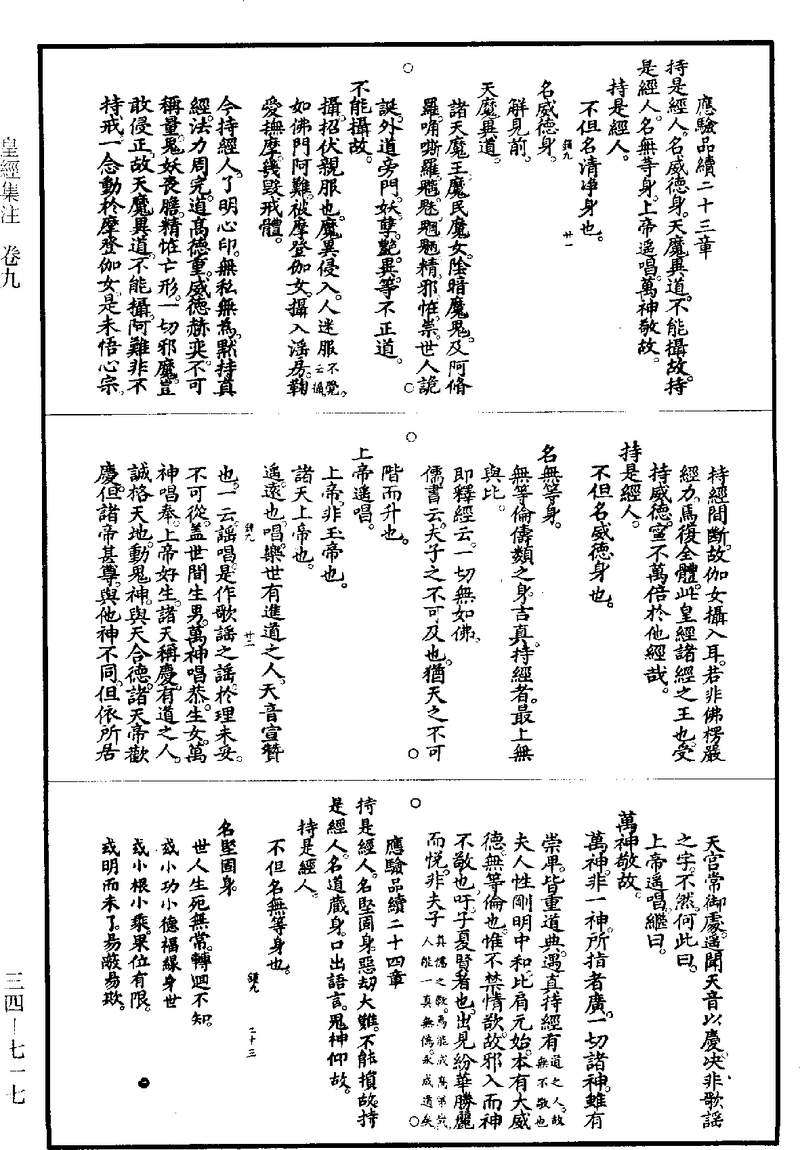 皇經集注　卷九
三四—七一七
應驗品續二十三章
持是經人。名威德身。天魔異道。不能攝故。持
是經人。名無等身。上帝遥唱。萬神敬故。
持是經人。
不但名清净身也。
名威德身。
解見前。
天魔異道。
諸天魔王。魔民魔女。陰暗魔鬼。及阿脩
羅。
精邪怪祟。世人詭
誕。外道旁門。妖孽艶異。等不正道。
不能攝故。
攝。招伏親服也。魔異侵入。人迷服不覺。云攝。
如佛門阿難。被摩登伽女。攝入滛房。鞠
愛撫摩。幾毁戒體。
今持經人。了明心印。無私無為。黙持真
經。法力周完。道高德重。威德赫奕。不可
稱量。鬼妖喪膽。精怪亡形。一切邪魔。豈
敢侵正。故天魔異道。不能攝。阿難非不
持戒。一念動於摩登伽女。是未悟心宗。
經九
廿一
持經間斷。故伽女攝入耳。若非佛楞嚴
經力。焉復全體。此皇經諸經之王也。受
持威德。寧不萬倍於他經哉。
持是經人。
不但名威德身也。
名無等身。
無等倫儔類之身。吉真。持經者。最上無
與比。
即釋經云。一切無如佛。
儒書云。夫子之不可及也。猶天之不可
階而升也。
上帝遥唱。
上帝。非玉帝也。
諸天上帝也。
遥。遠也。唱。樂世有進道之人。天音宣贊
也。一云。謡唱。是作歌謡之謡。於理未妥。
不可從。蓋世間生男。萬神唱恭。生女。萬
神唱奉。上帝好生。諸天稱慶。有道之人。
誠格天地。動鬼神。與天合德。諸天帝歡
慶。但諸帝甚尊。與他神不同。但依所居
經九
廿二
天宫常御處。遥聞天音以慶。决非歌謡
之字。不然。何此曰。
上帝遥唱。繼曰。
萬神敬故。
萬神。非一神。所指者廣。一切諸神。雖有
崇卑。皆重道典。遇真持經有道之人。故無不敬也
夫人性剛明中和。比肩元始。本有大威
德無等倫也。惟不禁情欲。故邪入而神
不敬也。吁。子夏賢者也。出見紛華勝麗
而悦。非夫子真儒之教。焉能成高弟哉。人能一真無僞。永成道矣
應驗品續二十四章
持是經人。名堅固身。惡劫大難。不能損故。持
是經人。名道藏身。口出語言。鬼神仰故。
持是經人。
不但名無等身也。
名堅固身
世人生死無常。轉迴不知。
或小功小德福緣身世
或小根小乘。果位有限。
或明而未了。易蔽易欺。
經九
二十三